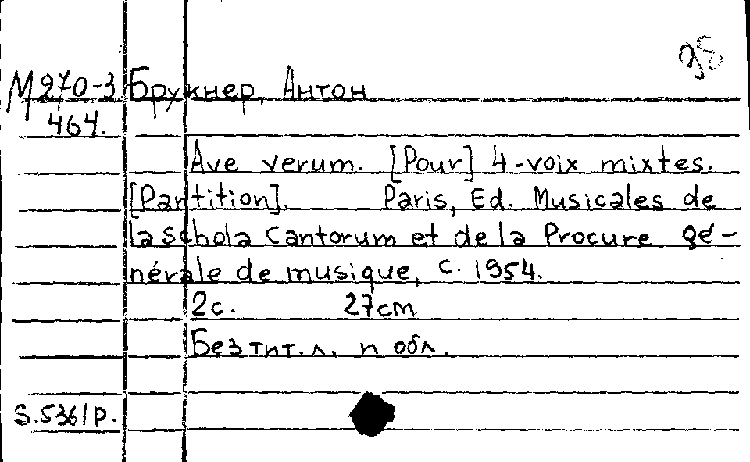 98
М270-3 Брукнер, Антон
464.
Ave verum. [Pour] 4-voix mixtes.
[Partition]. Paris, Ed. Musicales de
la schola Cantorum et de la Procure gé-
nérale de musique, c. 1954.
2с. 27cm
Без тит. л. и обл.
S.5361P.